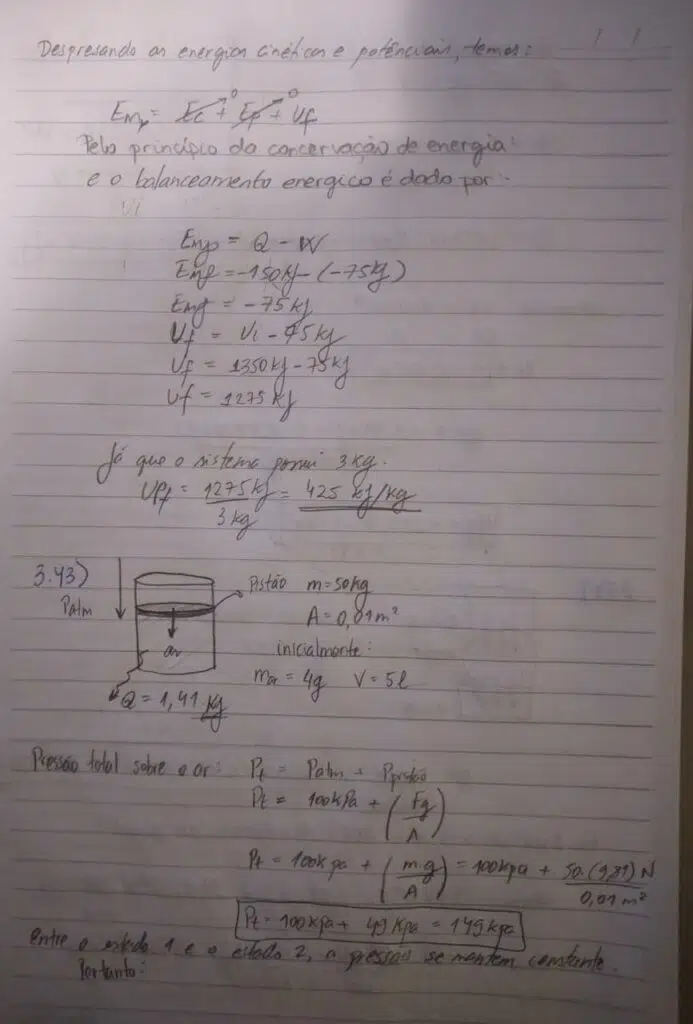 Despresando as energias cinéticas e potênciais, temos:
Emf = Ec + Ep + Uf
0 0
Pelo princípio da concervação de energia:
e o balanceamento energico é dado por:
Emf = Q - W
Emf = -150kJ - (-75kJ)
Emf = -75kJ
Uf = Ui - 75kJ
Uf = 1350kJ - 75kJ
Uf = 1275kJ
Já que o sistema possui 3kg.
Upf = 1275kJ / 3kg = 425 kJ/kg
3.43)
Patm
Pistão m = 50kg
A = 0,01m²
ar
inicialmente:
mar = 4g V = 5l
Q = 1,41 kJ
Pressão total sobre o ar: Pt = Patm + Ppistão
Pt = 100kPa + (Fg / A)
Pt = 100kpa + (m.g / A) = 100kpa + 50.(9,81) N / 0,01 m²
Pt = 100kpa + 49 Kpa = 149kpa
Entre o estado 1 e o estado 2, a pressão se mantem constante.
Portanto: